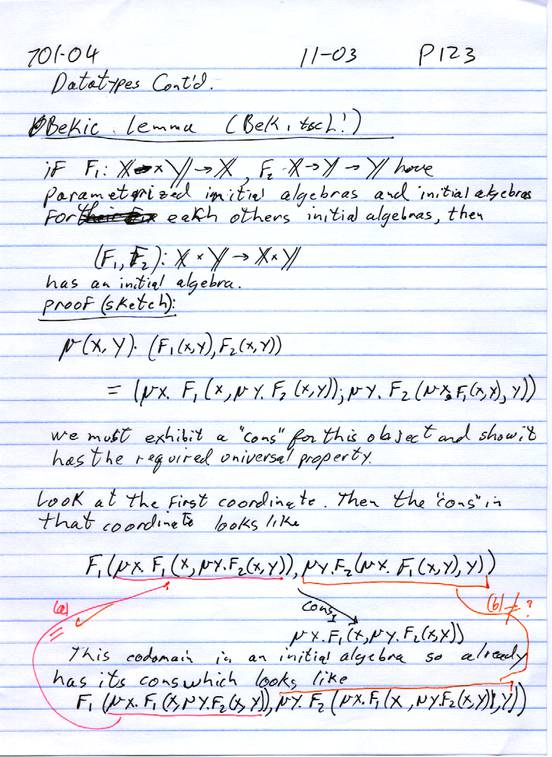 701-04 11-03 P123
Datatypes Cont'd.
Bekic lemma (Bek.tsch!)
if F₁: X × Y → X, F₂ X → Y → Y have
parameterized initial algebras and initial algebras
for each others initial algebras, then
(F₁, F₂): X × Y → X × Y
has an initial algebra.
proof (sketch):
μ(x,y). (F₁(x,y), F₂(x,y))
= (μx. F₁(x, μy. F₂(x,y)), μy. F₂(μx. F₁(x,y), y))
we must exhibit a "cons" for this object and show it
has the required universal property.
Look at the first coordinate. Then the "cons" in
that coordinate looks like
F₁(μx. F₁(x, μy. F₂(x,y)), μy. F₂(μx. F₁(x,y), y))
(a) = cons₁ (b) ≠ ?
μx. F₁(x, μy. F₂(x,y))
This codomain is an initial algebra so already
has its cons which looks like
F₁(μx. F₁(x, μy. F₂(x,y)), μy. F₂(μx. F₁(x, μy. F₂(x,y)), y))